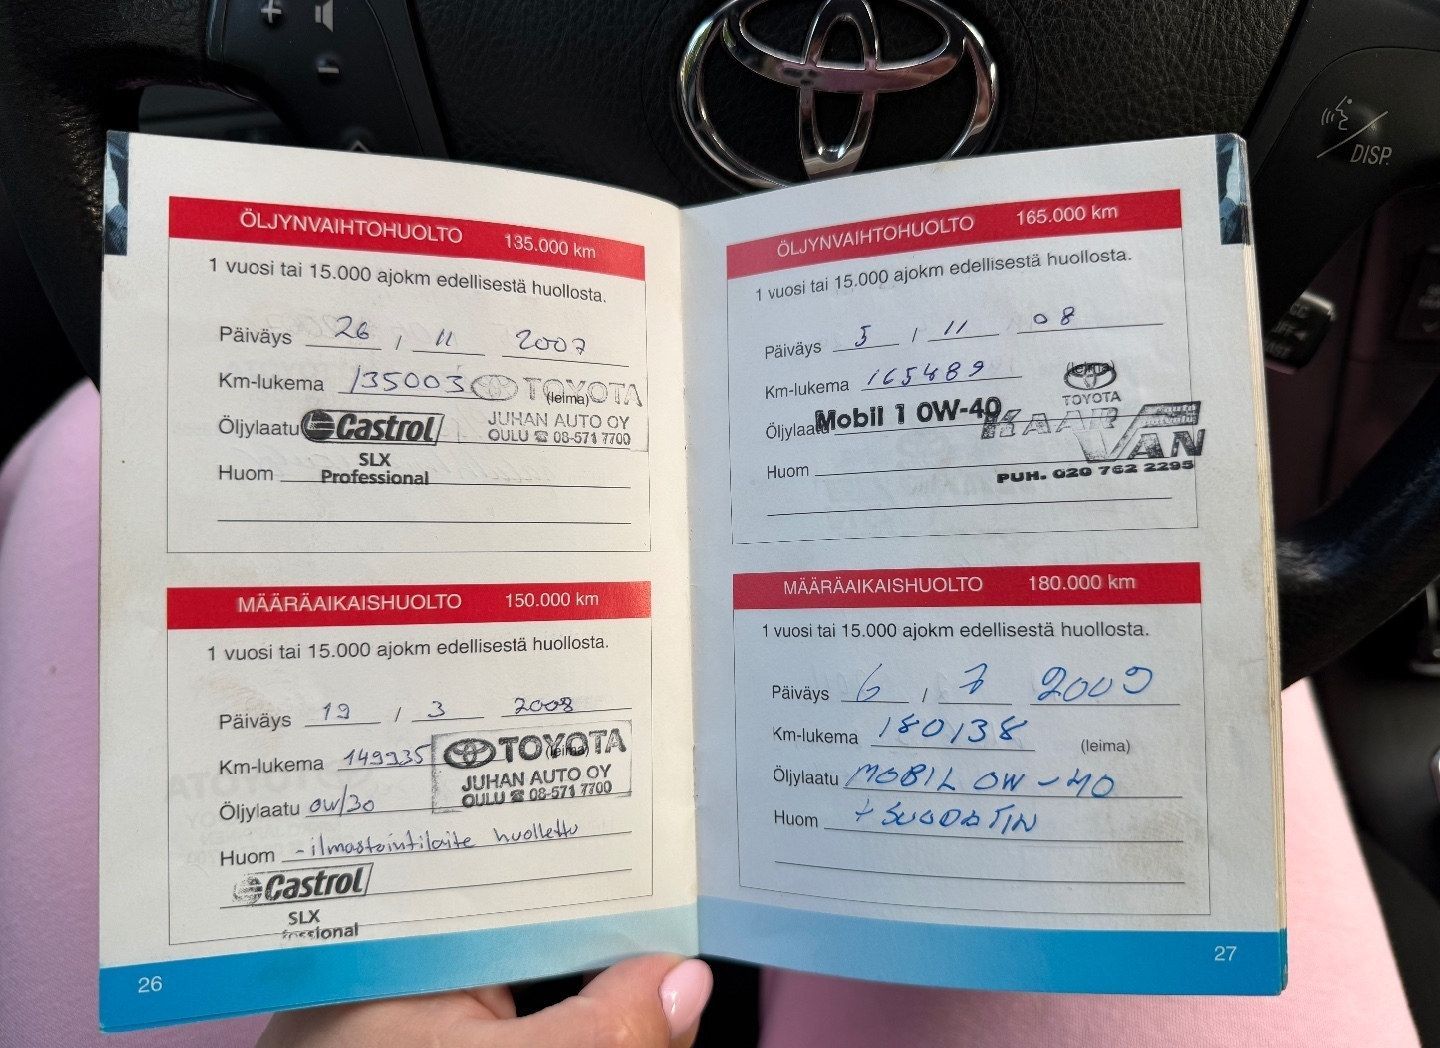 DISP.
ÖLJYNVAIHTOHUOLTO 135.000 km
1 vuosi tai 15.000 ajokm edellisestä huollosta.
Päiväys 26 / 11 2007
Km-lukema 135003
TOYOTA
(leima)
JUHAN AUTO OY
OULU ☎ 08-571 7700
Öljylaatu Castrol
SLX
Professional
Huom
MÄÄRÄAIKAISHUOLTO 150.000 km
1 vuosi tai 15.000 ajokm edellisestä huollosta.
Päiväys 19 / 3 2008
Km-lukema 149935
TOYOTA
(leima)
JUHAN AUTO OY
OULU ☎ 08-571 7700
Öljylaatu 0W/30
Huom - ilmastointilaite huollettu
Castrol
SLX
26
ÖLJYNVAIHTOHUOLTO 165.000 km
1 vuosi tai 15.000 ajokm edellisestä huollosta.
Päiväys 5 / 11 08
Km-lukema 165489
(leima)
TOYOTA
Öljylaatu Mobil 1 0W-40
KAAR
VAN
PUH. 020 762 2295
Huom
MÄÄRÄAIKAISHUOLTO 180.000 km
1 vuosi tai 15.000 ajokm edellisestä huollosta.
Päiväys 6 / 7 2009
Km-lukema 180138
(leima)
Öljylaatu MOBIL 0W-40
Huom + SUODATIN
27